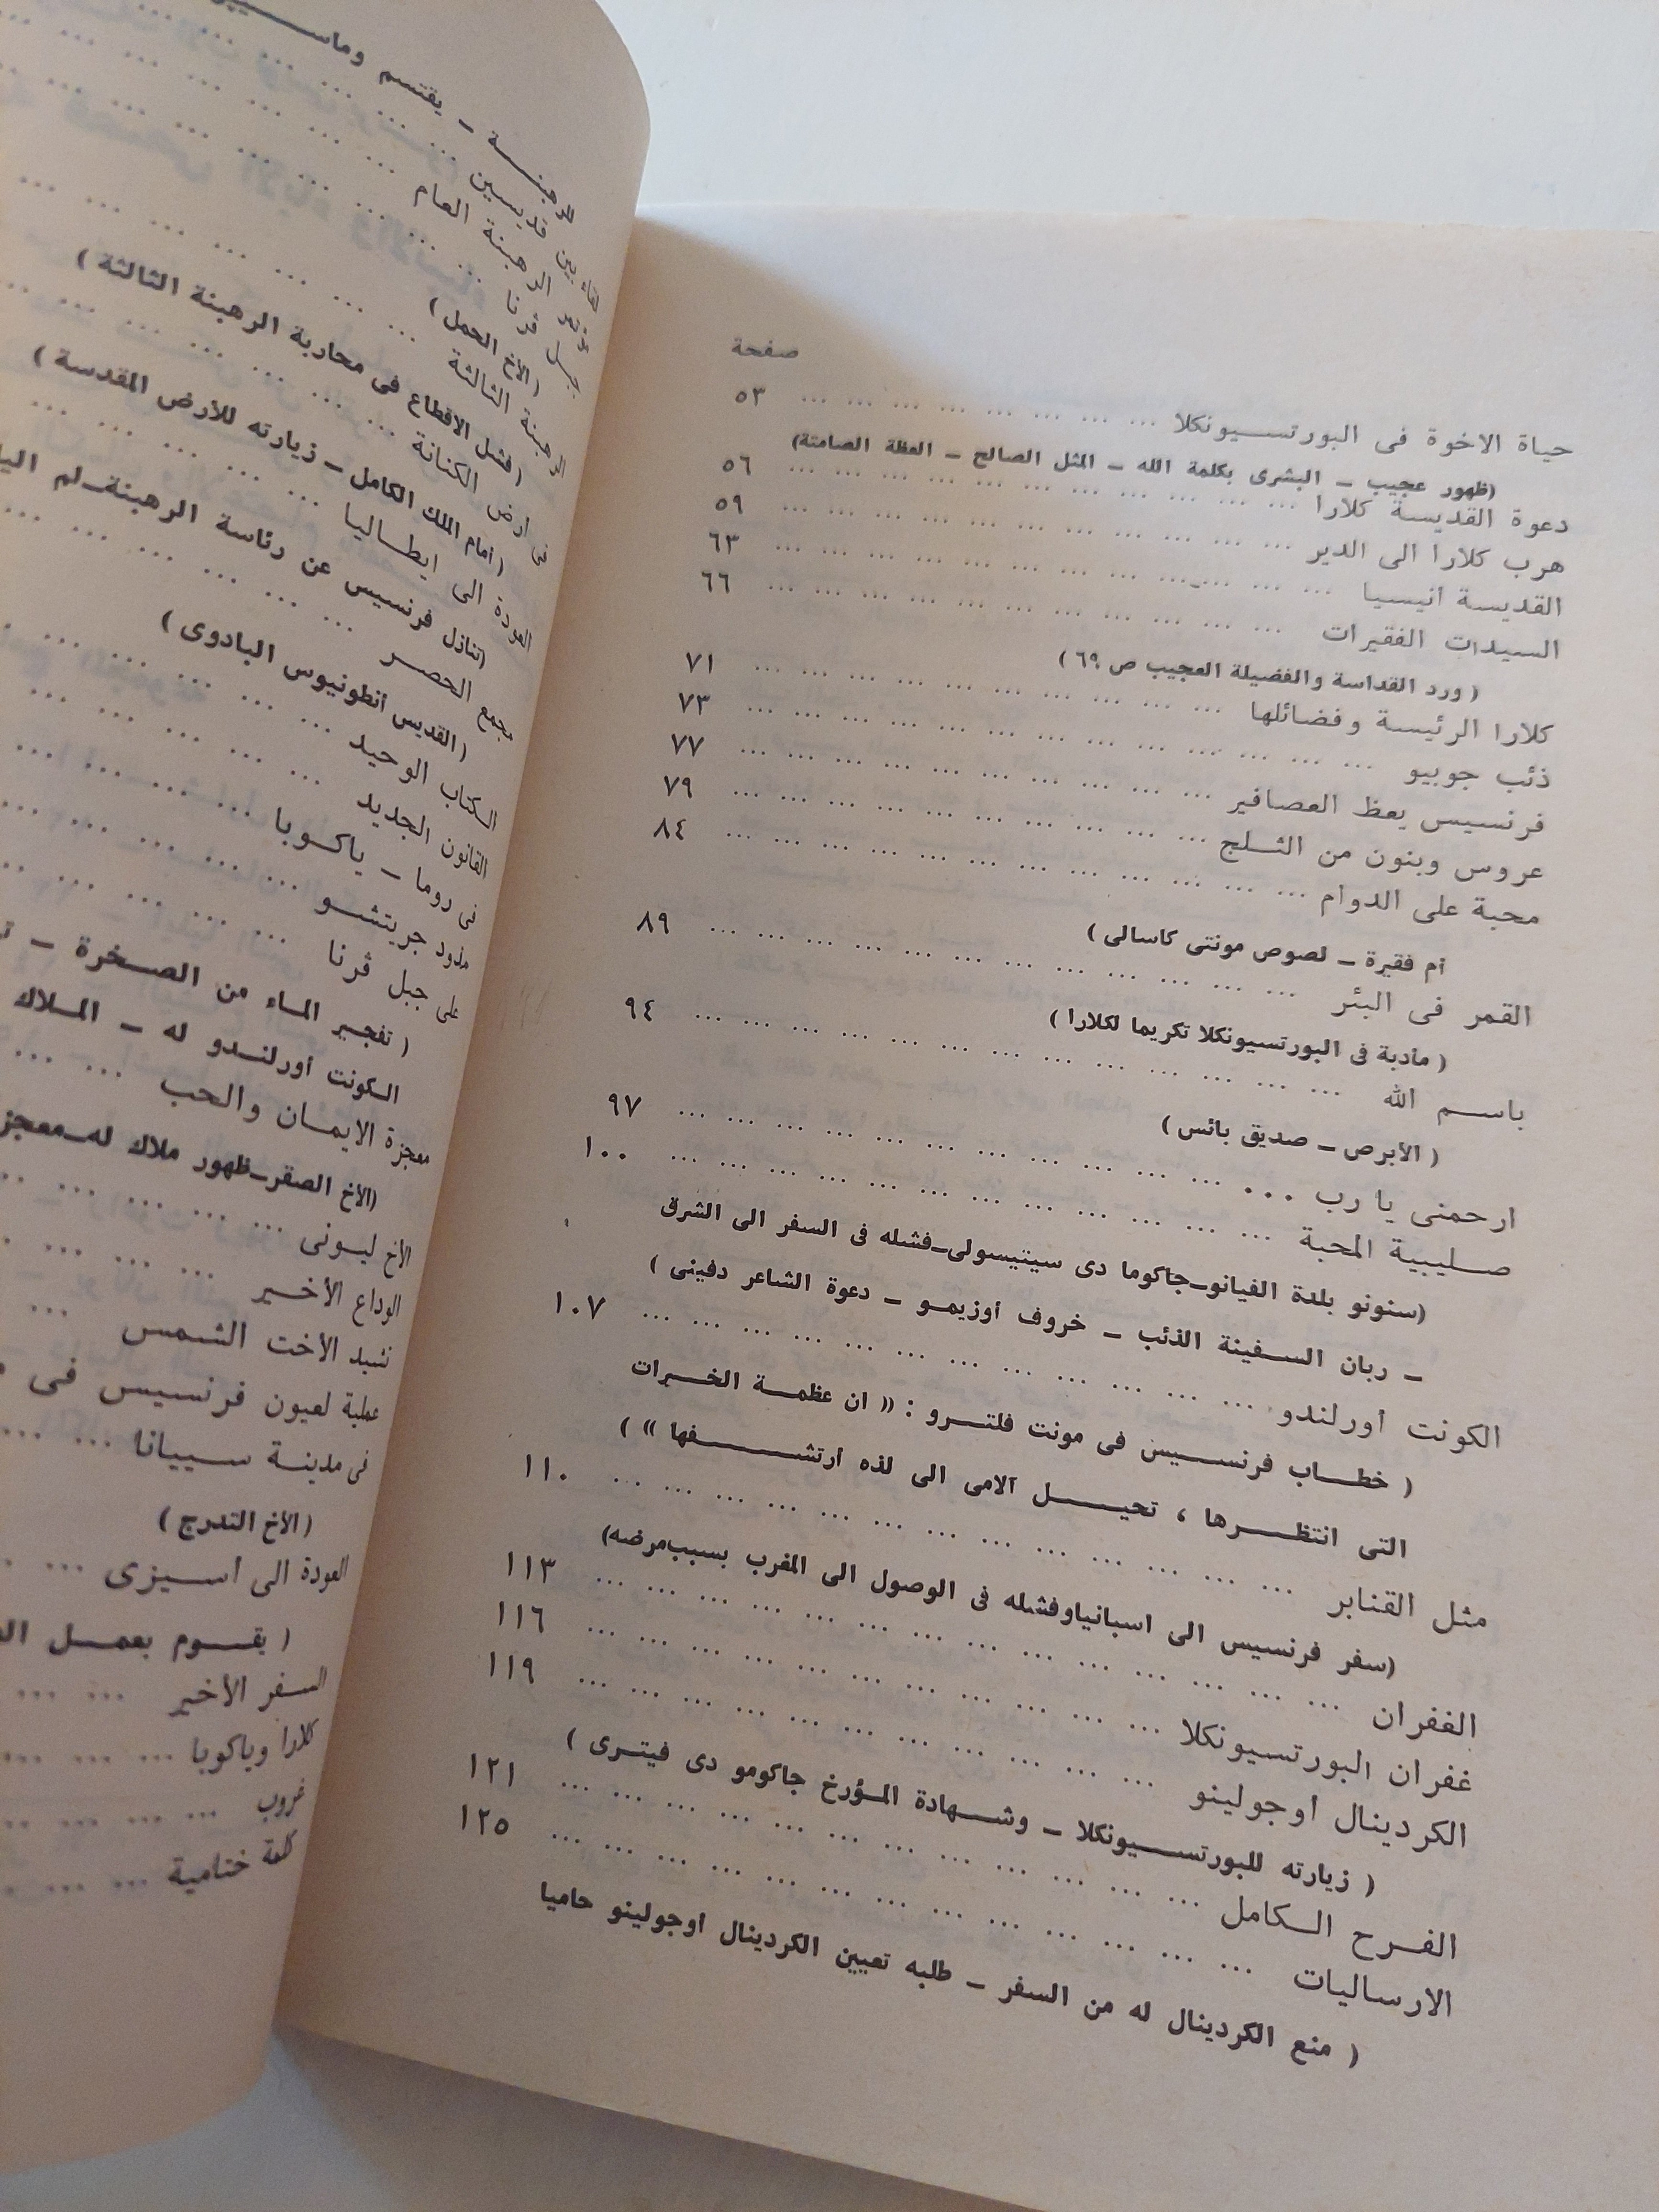 صفحة
حياة الاخوة فى البورتسيونكلا ... ... ... ... ... ... ... ... ٥٣
(ظهور عجيب – البشرى بكلمة الله – المثل الصالح – العظة الصامتة)
دعوة القديسة كلارا ... ... ... ... ... ... ... ... ... ... ... ٥٦
هرب كلارا الى الدير ... ... ... ... ... ... ... ... ... ... ... ٥٩
القديسة انيسيا ... ... ... ... ... ... ... ... ... ... ... ... ٦٣
السيدات الفقيرات ... ... ... ... ... ... ... ... ... ... ... ٦٦
( ورد القداسة والفضيلة العجيب ص ٦٩ )
كلارا الرئيسة وفضائلها ... ... ... ... ... ... ... ... ... ... ٧١
ذئب جوبيو ... ... ... ... ... ... ... ... ... ... ... ... ... ٧٣
فرنسيس يعظ العصافير ... ... ... ... ... ... ... ... ... ... ٧٧
عروس وبنون من الثلج ... ... ... ... ... ... ... ... ... ... ٧٩
محبة على الدوام ... ... ... ... ... ... ... ... ... ... ... ... ٨٤
أم فقيرة – لصوص مونتى كاسالى )
القمر فى البئر ... ... ... ... ... ... ... ... ... ... ... ... ٨٩
( مأدبة فى البورتسيونكلا تكريما لكلارا )
باسم الله ... ... ... ... ... ... ... ... ... ... ... ... ... ٩٤
( الأبرص – صديق بائس )
ارحمنى يا رب ... ... ... ... ... ... ... ... ... ... ... ... ٩٧
صليبية المحبة ... ... ... ... ... ... ... ... ... ... ... ... ١٠٠
(سنونو بلدة الفيانو–جاكوما دى سيتيسولى–فشله فى السفر الى الشرق
– ربان السفينة الذئب – خروف أوزيمو – دعوة الشاعر دفينى )
الكونت أورلندو ... ... ... ... ... ... ... ... ... ... ... ... ١٠٧
( خطاب فرنسيس فى مونت فلترو : « ان عظمة الخيرات
التى انتظرها ، تحيل آلامى الى لذه ارتشفها » )
مثل القنابر ... ... ... ... ... ... ... ... ... ... ... ... ... ١١٠
(سفر فرنسيس الى اسبانياوفشله فى الوصول الى المغرب بسبب‌مرضه)
الغفران ... ... ... ... ... ... ... ... ... ... ... ... ... ... ١١٣
غفران البورتسيونكلا ... ... ... ... ... ... ... ... ... ... ... ١١٦
الكردينال أوجولينو ... ... ... ... ... ... ... ... ... ... ... ١١٩
( زيارته للبورتسيونكلا – وشهادة المؤرخ جاكومو دى فيترى )
الفرح الكامل ... ... ... ... ... ... ... ... ... ... ... ... ١٢١
الارساليات ... ... ... ... ... ... ... ... ... ... ... ... ... ١٢٥
( منع الكردينال له من السفر – طلبه تعيين الكردينال اوجولينو حاميا
للرهبنة – يقتسم
لقاء بين قديسين ... ... ...
مؤتمر الرهبنة العام ... ... ...
جبل ڤرنا ... ... ...
(الأخ الحمل )
الرهبنة الثالثة ... ... ...
(فشل الاقطاع فى محاربة الرهبنة الثالثة )
فى أرض الكنانة ... ... ...
( أمام الملك الكامل – زيارته للأرض المقدسة )
العودة الى ايطاليا ... ... ...
(تنازل فرنسيس عن رئاسة الرهبنة–لم
مجمع الحصر ... ... ...
( القديس أنطونيوس البادوى )
الكتاب الوحيد ... ... ...
القانون الجديد ... ... ...
فى روما – ياكوبا ... ... ...
مذود جريتشو ... ... ...
على جبل ڤرنا ... ... ...
( تفجير الماء من الصخرة –
الكونت أورلندو له – الملاك
معجزة الايمان والحب ... ... ...
(الأخ الصقر–ظهور ملاك له–
الأخ ليونى ... ... ...
الوداع الأخير ... ... ...
نشيد الأخت الشمس ...
عملية لعيون فرنسيس فى
فى مدينة سييانا ... ...
(الأخ التدرج )
العودة الى اسيزى ... ...
( يقوم بعمل
السفر الأخير ... ...
كلارا وياكوبا ... ... ...
غروب ... ... ...
كلمة ختامية ... ... ...